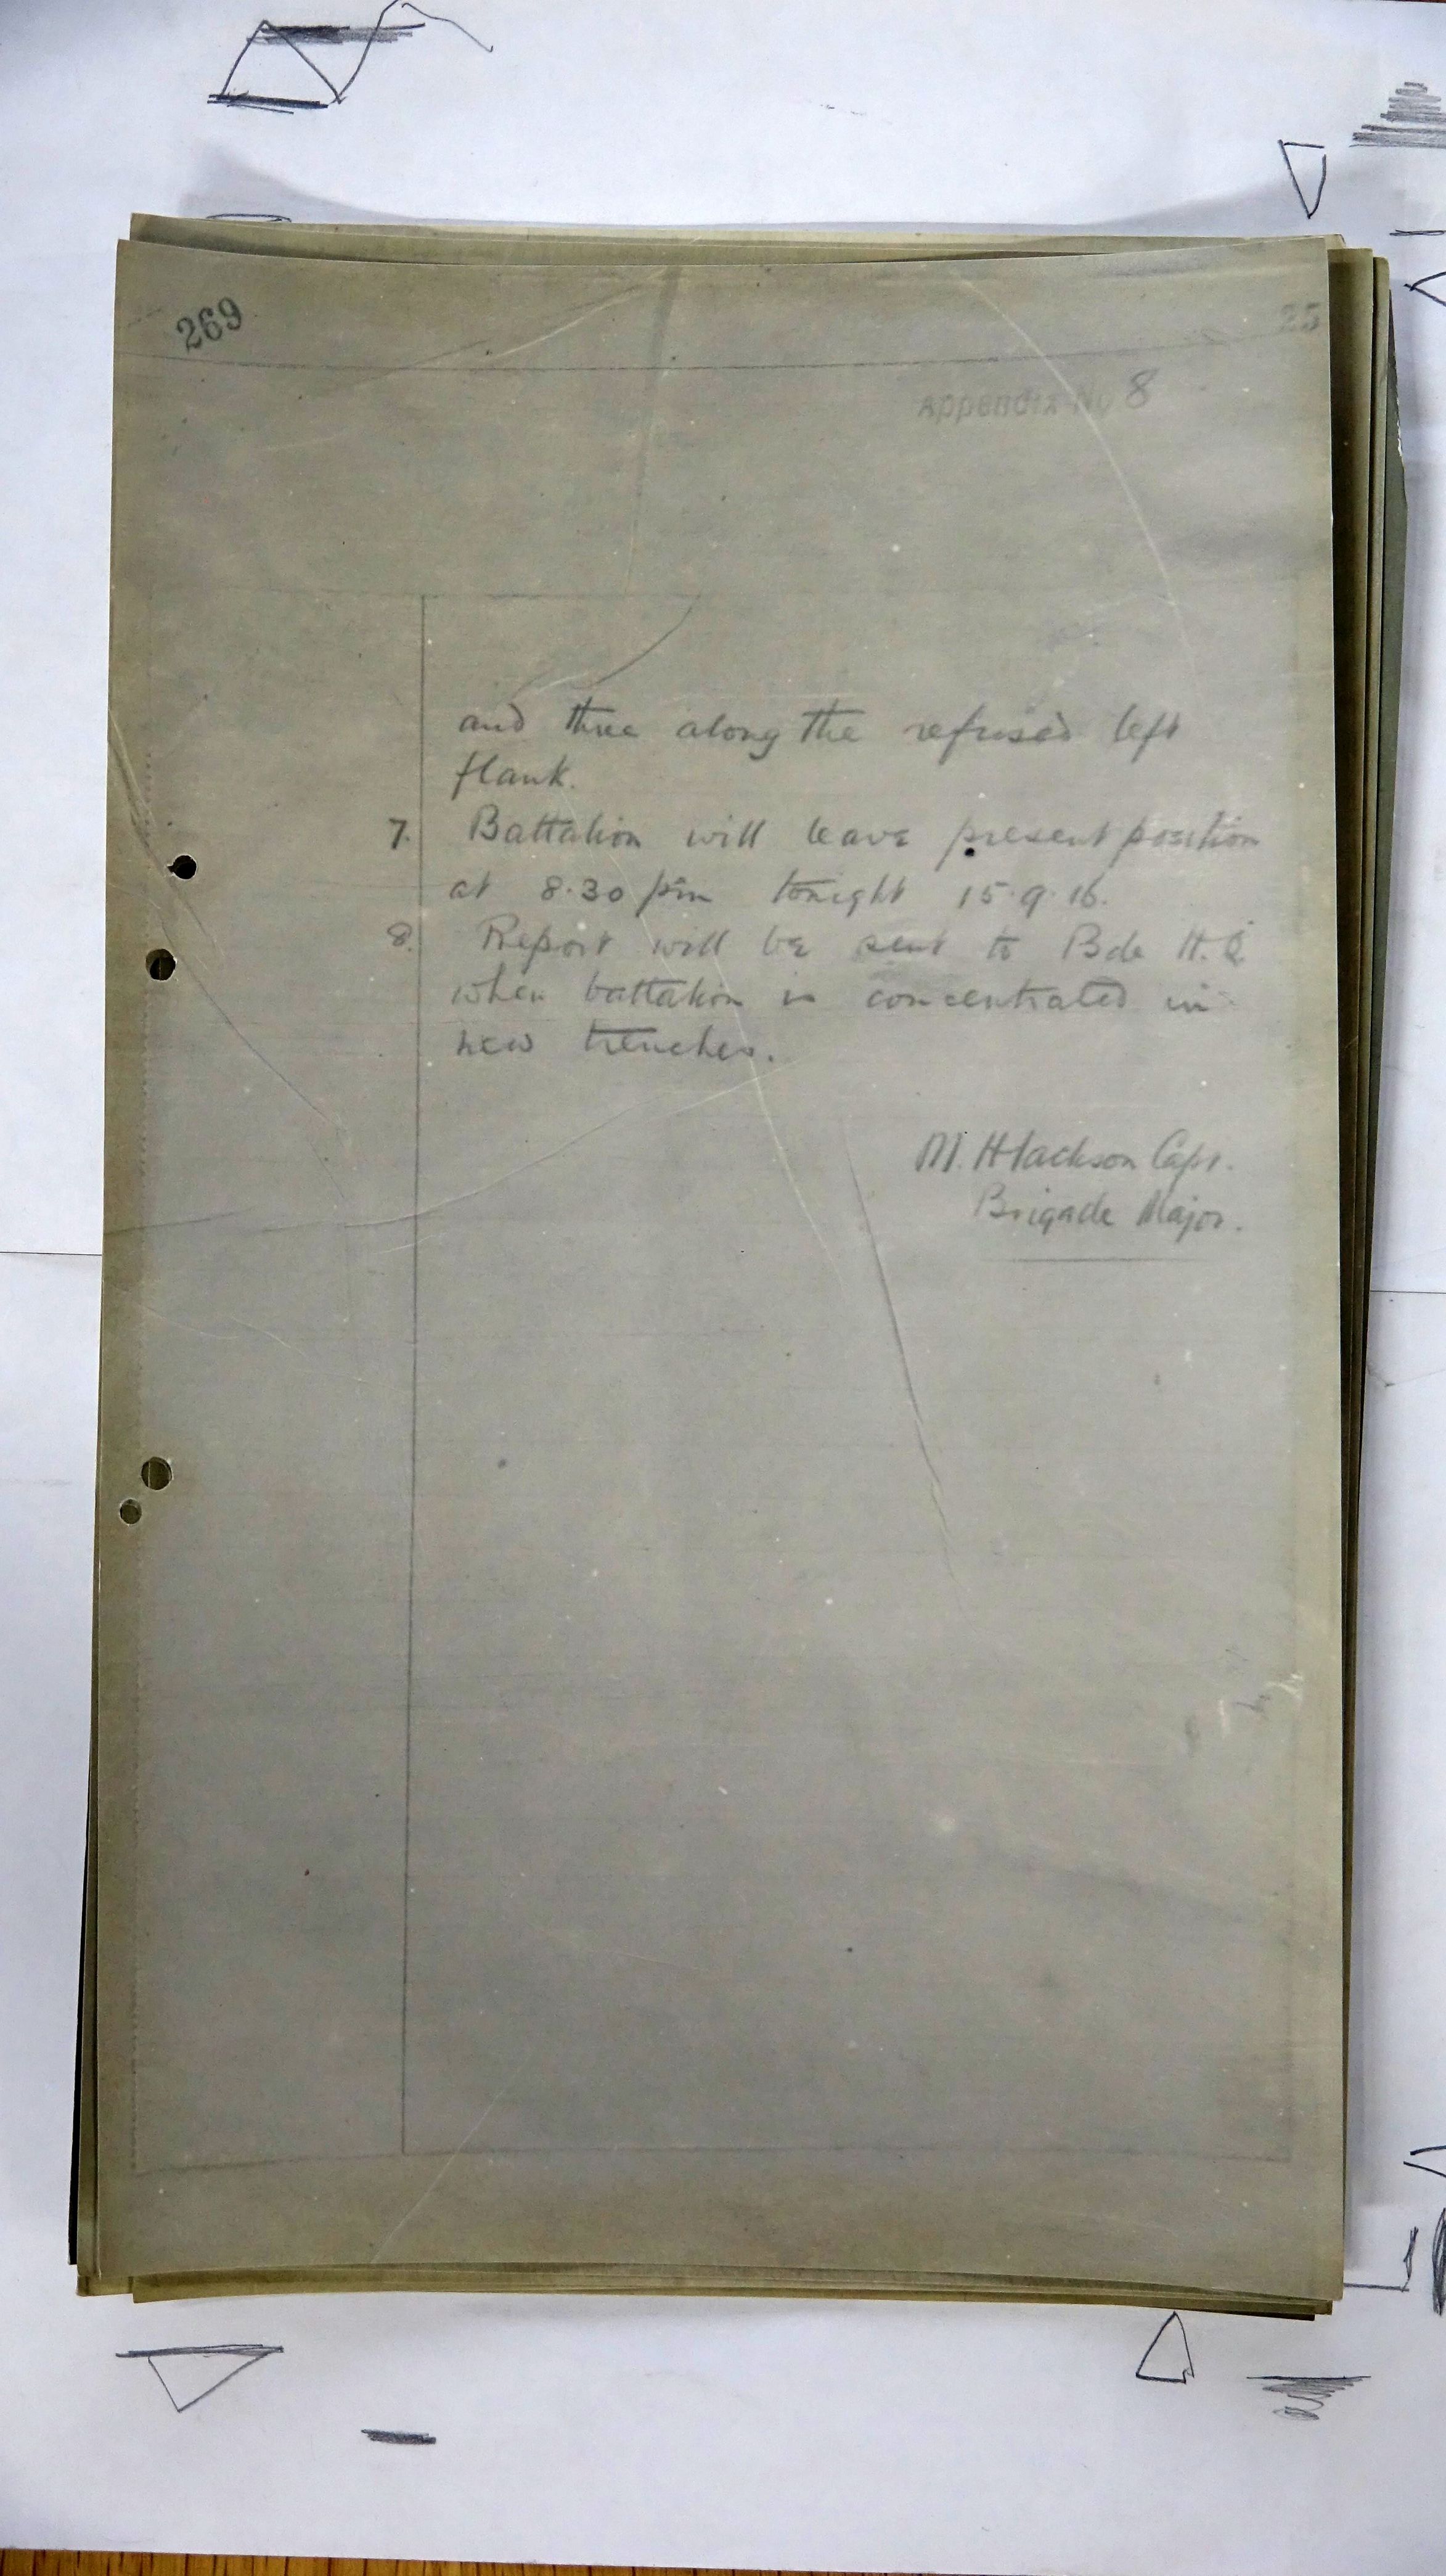 269
25
Appendix No 8
and three along the refused left
flank.
7. Battalion will leave present position
at 8.30 pm tonight 15.9.16.
8. Report will be sent to Bde H.Q.
when battalion is concentrated in
new trenches.
M. H Jackson Capt.
Brigade Major.